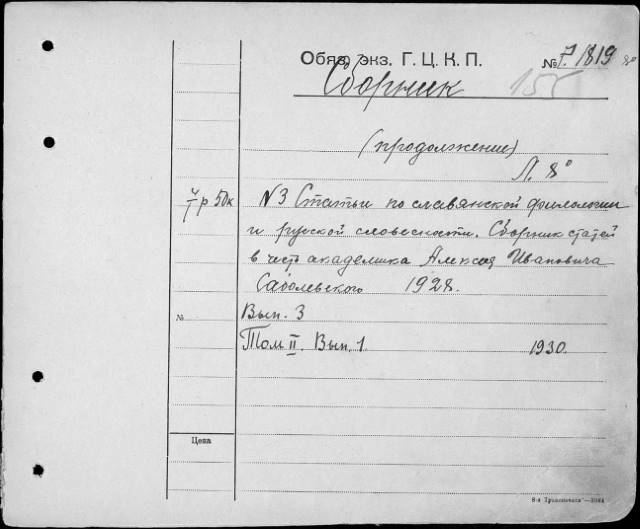 Обяз. экз. Г. Ц. К. П. № 7/1819 8°
Сборник 155
(продолжение)
Л. 8°
7 р 50к N3 Статьи по славянской филологии
и русской словесности. Сборник статей
в честь академика Алексея Ивановича
Соболевского 1928.
№ Вып. 3
Том II. Вып. 1 1930.
Цена